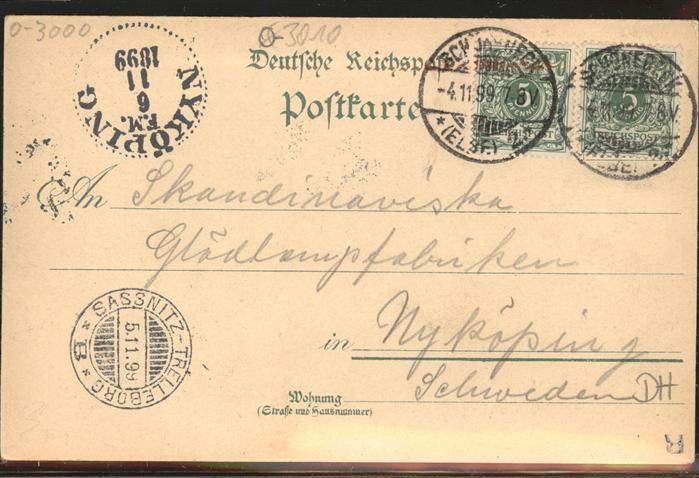 0-3000
0-3010
NYKÖPING
6
F.M.
11
1899
Deutsche Reichspost
Postkarte
SCHÖNEBECK
-4.11.99.7-8V
* (ELBE)
5
REICHSPOST
An Skandinaviska
Glödlampfabriken
in Nyköping
Schweden
DH
SASSNITZ-TRELLEBORG
5.11.99
* B *
Wohnung
(Straße und Hausnummer)